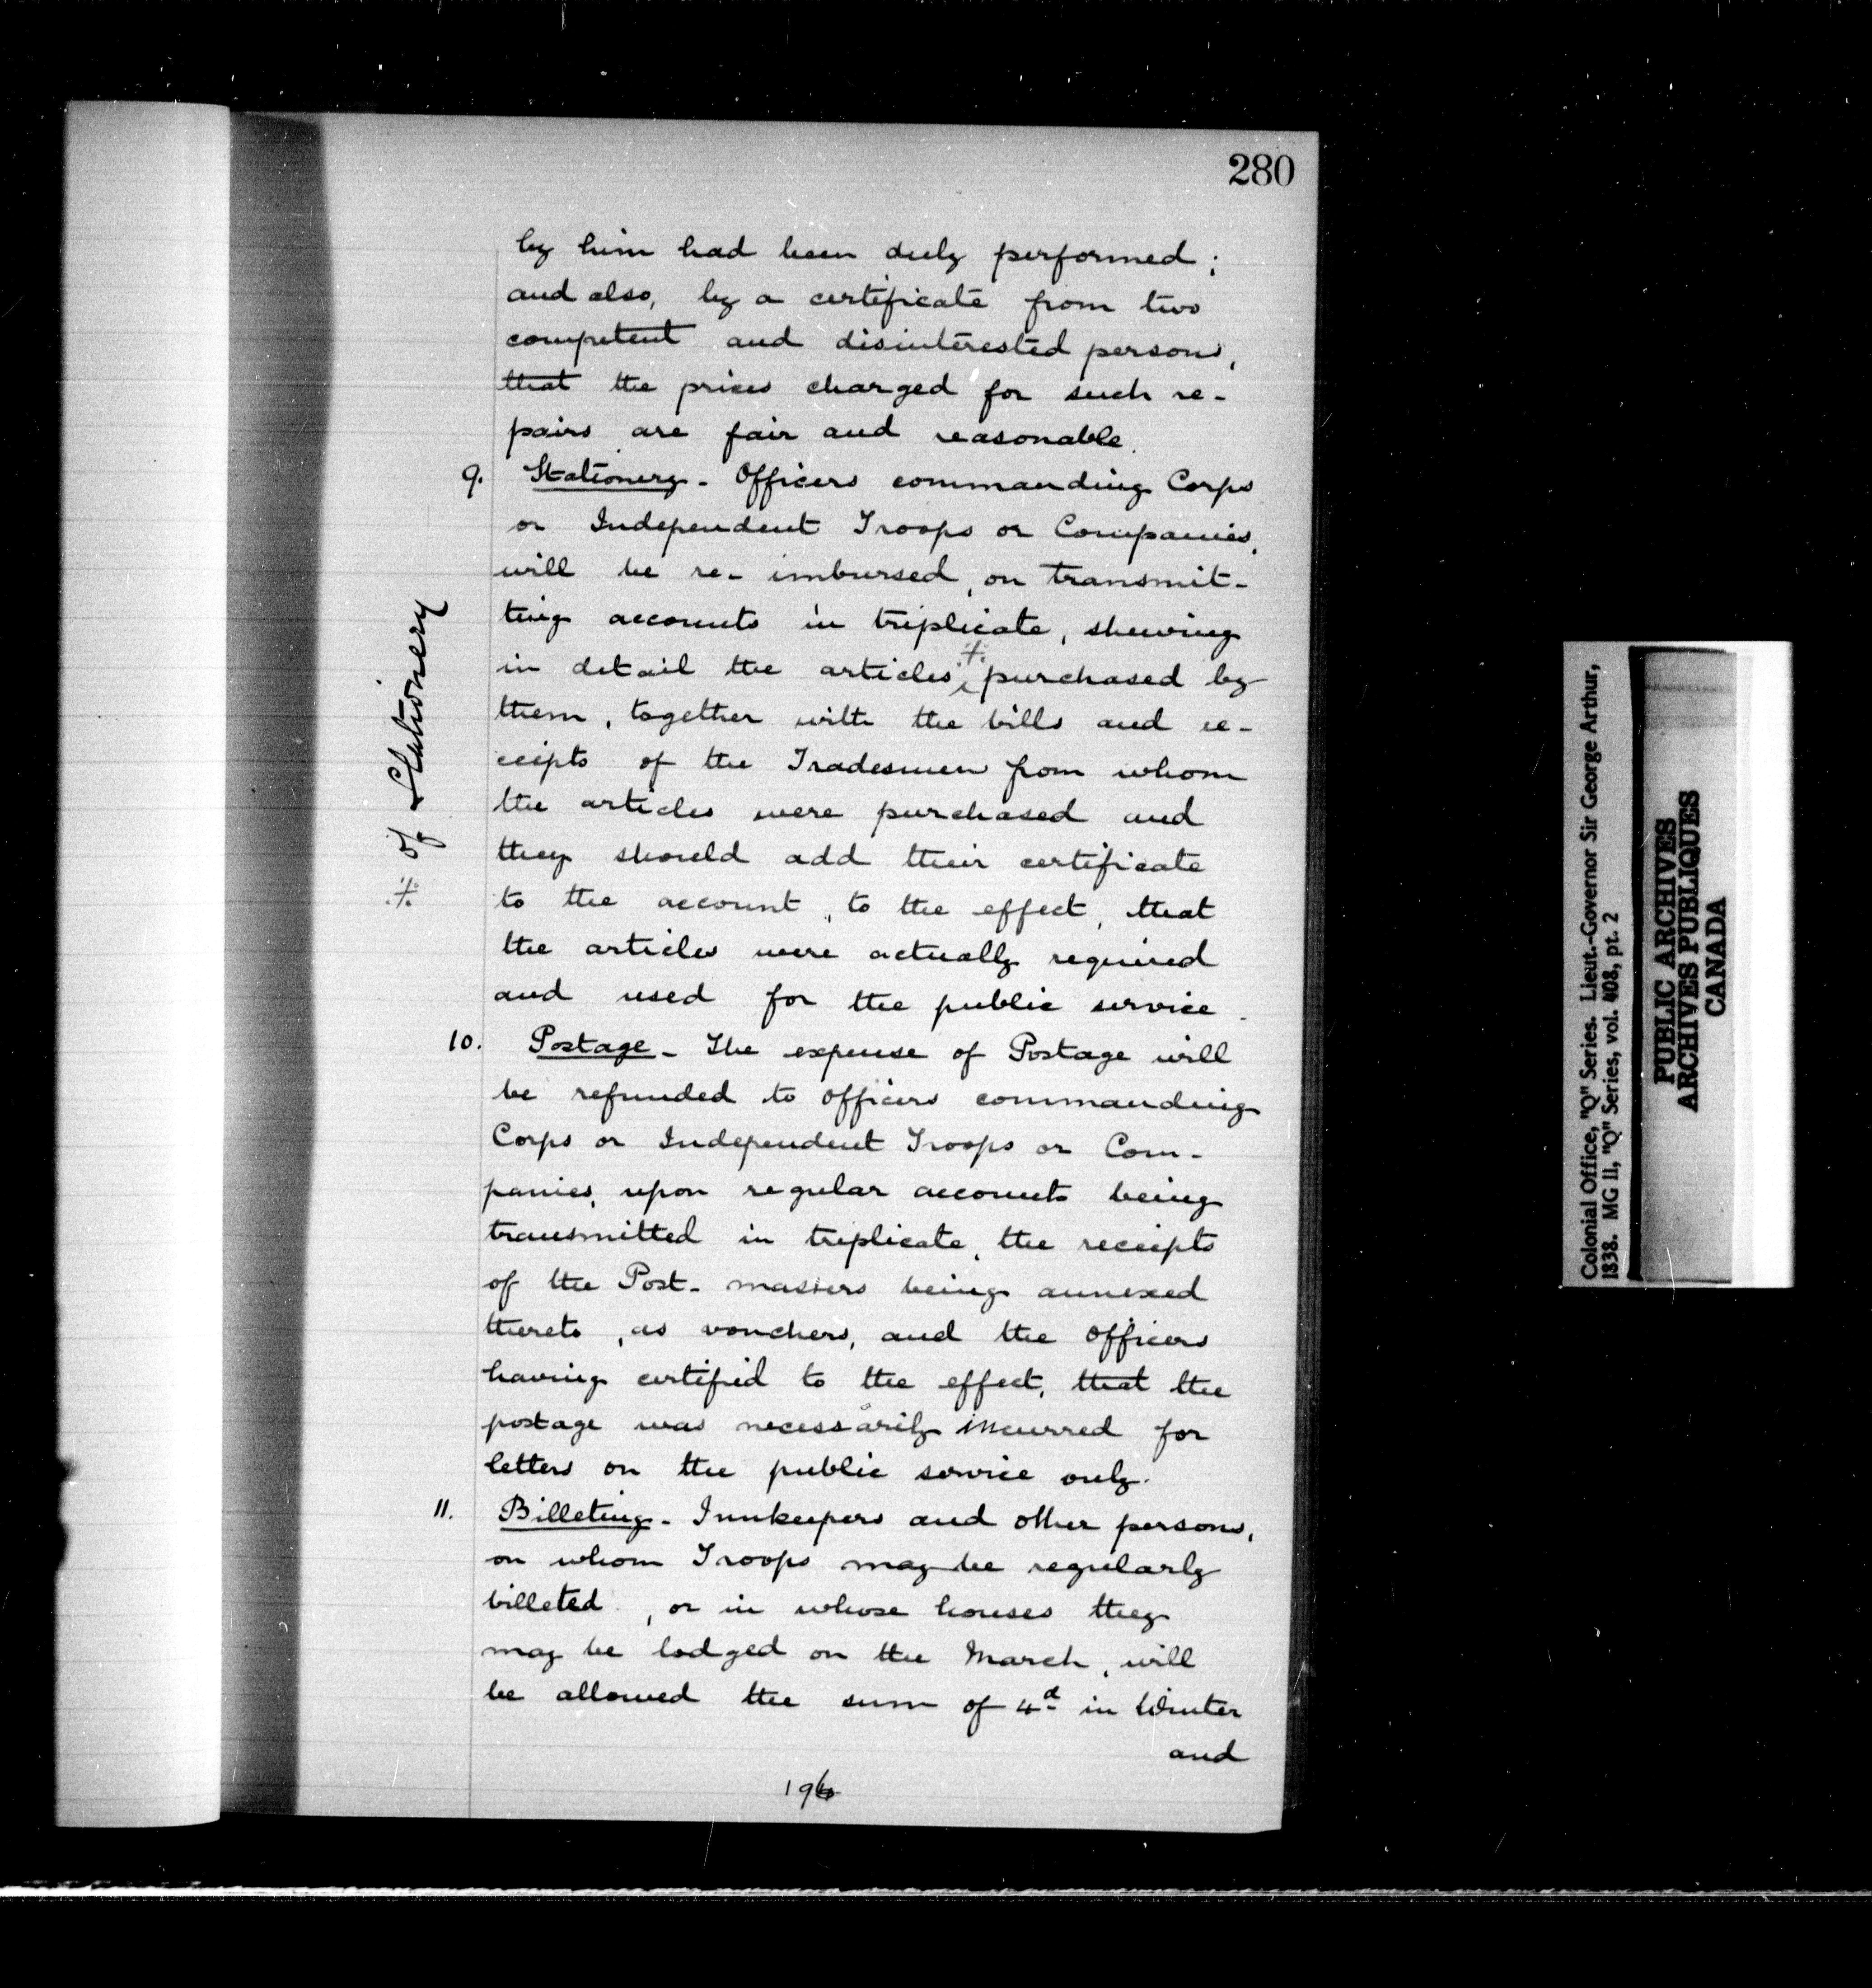 280
by him had been duly performed;
and also, by a certificate from two
competent and disinterested persons,
that the prices charged for such re-
pairs are fair and reasonable.
9. Stationery - Officers commanding Corps
or Independent Troops or Companies,
will be re-imbursed, on transmit-
ting accounts in triplicate, shewing
in detail the articles ⁒ purchased by
them, together with the bills and re-
ceipts of the Tradesmen from whom
the articles were purchased and
they should add their certificate
to the account, to the effect, that
the articles were actually required
and used for the public service.
⁒ of Stationery
10. Postage - The expense of Postage will
be refunded to officers commanding
Corps or Independent Troops or Com-
panies, upon regular accounts being
transmitted in triplicate, the receipts
of the Post-masters being annexed
thereto, as vouchers, and the officers
having certified to the effect, that the
postage was necessarily incurred for
letters on the public service only.
11. Billeting - Innkeepers and other persons,
on whom Troops may be regularly
billeted, or in whose houses they
may be lodged on the March, will
be allowed the sum of 4d in Winter
and
196
Colonial Office, "Q" Series. Lieut.-Governor Sir George Arthur,
1838. MG 11, "Q" Series, vol. 408, pt. 2
PUBLIC ARCHIVES
ARCHIVES PUBLIQUES
CANADA